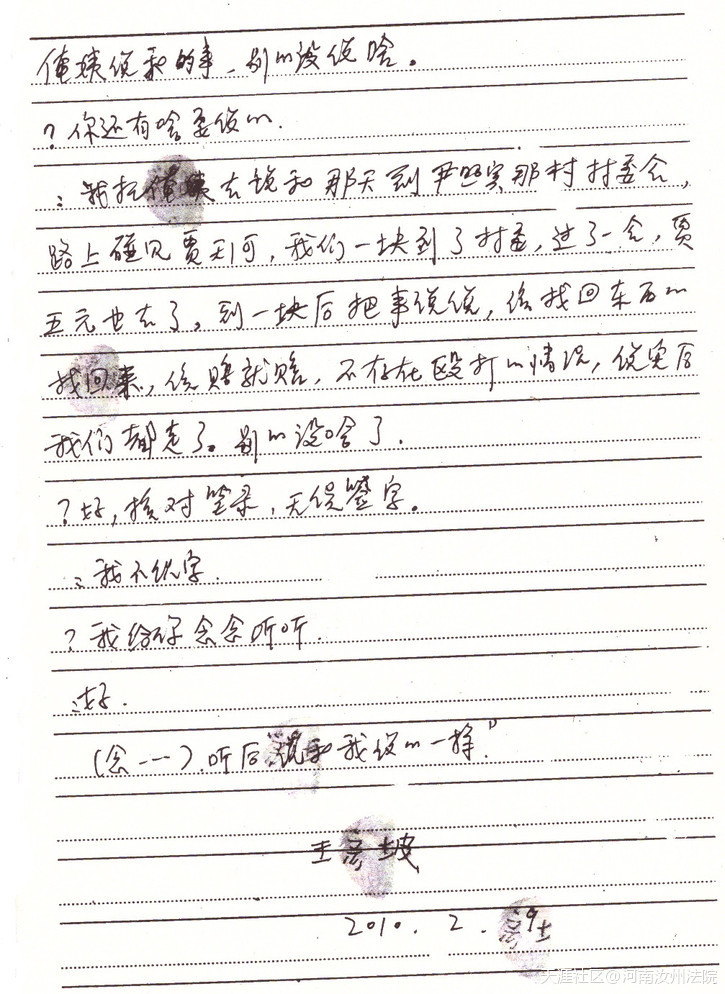 俺姨说和的事，别的没说啥。
？你还有啥要说的.
：我托俺姨去说和那天到尹照实那村村委会，
路上碰见贾天河，我们一块到了村委，过了一会，贾
五元也去了，到一块后把事说说，该找回东西的
找回来，该赔就赔，不存在殴打的情况，说完后
我们都走了。别的没啥了.
？好，核对笔录，无误签字。
：我不识字.
？我给你念念听听.
：好.
(念一一).听后"说和我说的一样."
王彦坡
2010. 2. 9
天涯社区@河南汝州法院